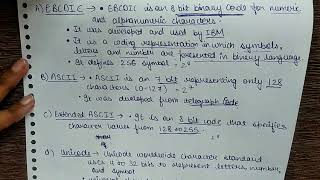 A) EBCDIC → • EBCDIC is an 8 bit binary code for numeric
and alphanumeric characters.
• It was developed and used by IBM
• It is a coding representation in which symbols,
letters and number are presented in binary language
• It defines 256 symbol = 2⁸
B) ASCII → • ASCII is a 7 bit representing only 128
characters (0-127) = 2⁷
• It was developed from telegraph code
C) Extended ASCII → • It is an 8 bit code that specifies
character values from 128 to 255
= 2⁸
d) Unicode → Unicode worldwide character standard
uses 4 to 32 bits to represent letters, number,
and symbol